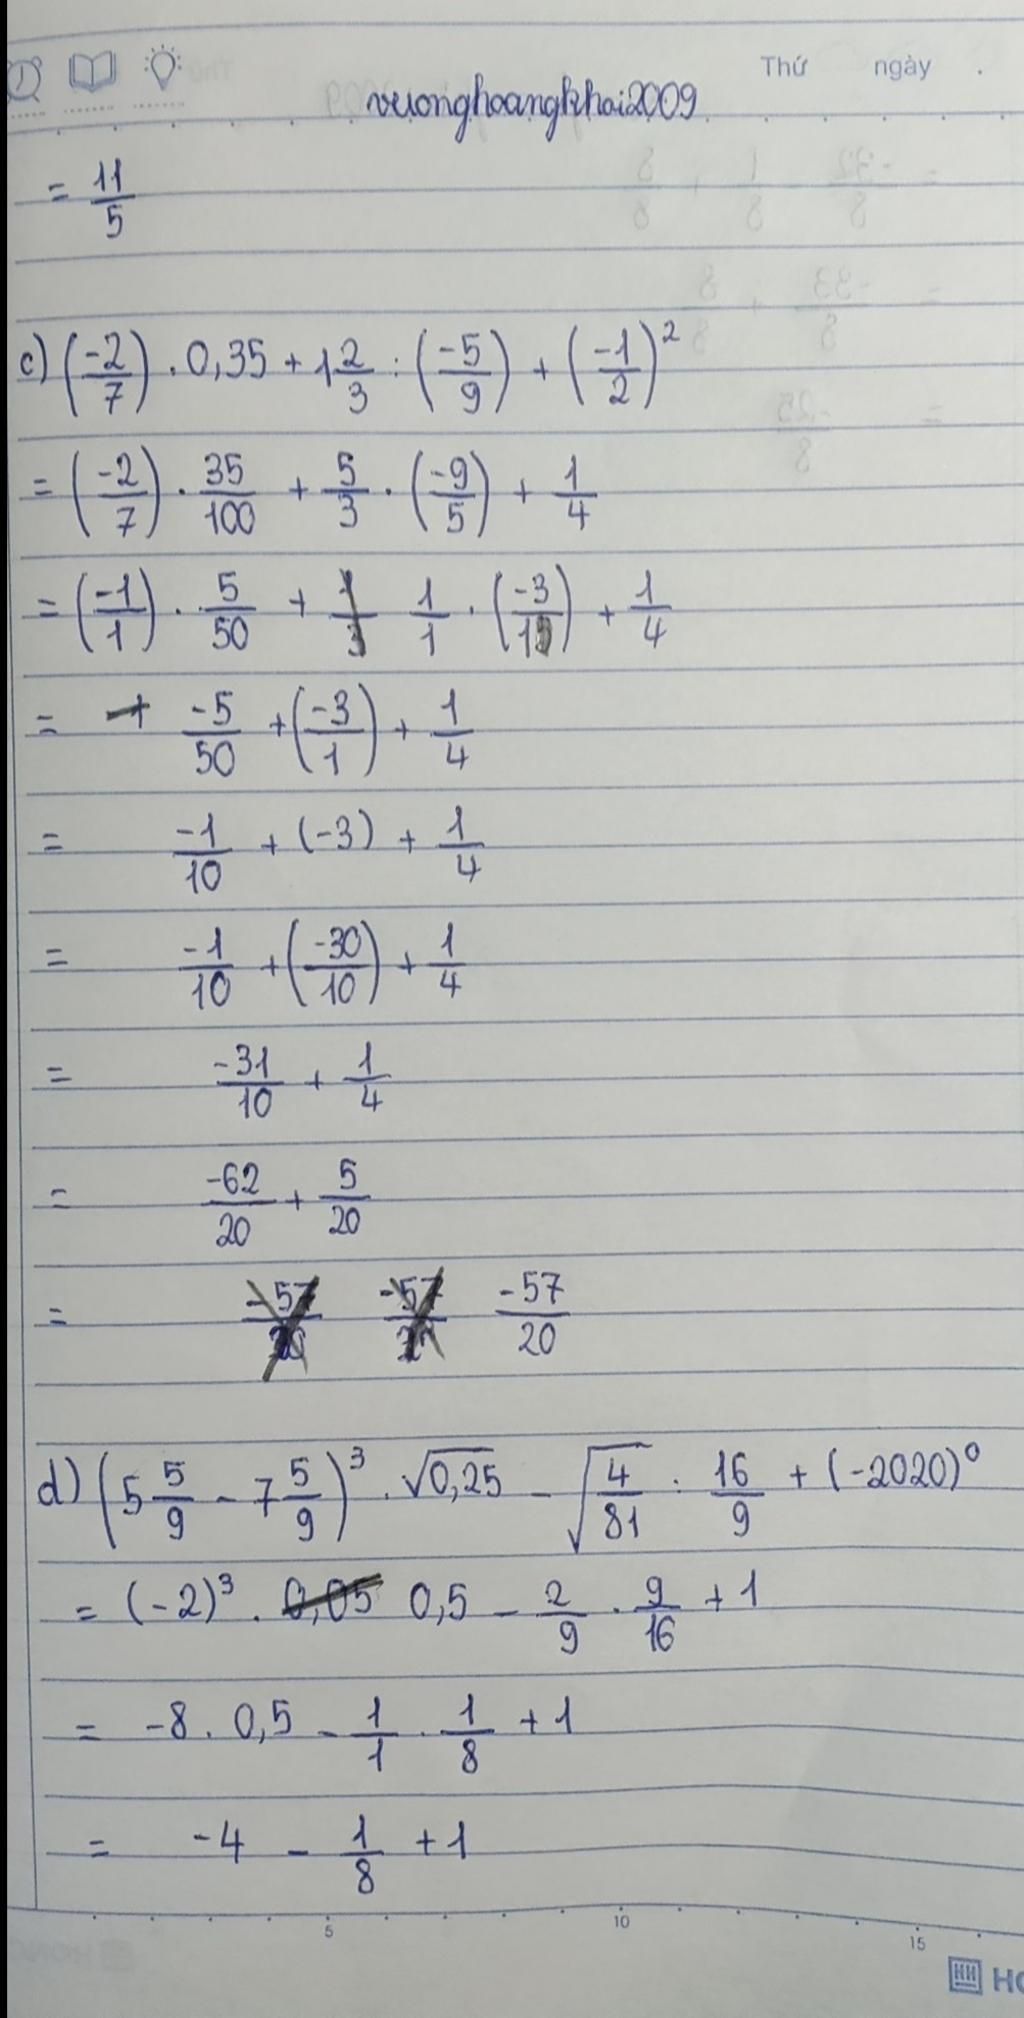 Thứ ngày .
vuonghoangkhai2009
= 11/5
c) (-2/7) . 0,35 + 1 2/3 : (-5/9) + (-1/2)²
= (-2/7) . 35/100 + 5/3 . (-9/5) + 1/4
= (-1/1) . 5/50 + 1/1 . (-3/1) + 1/4
= -5/50 + (-3/1) + 1/4
= -1/10 + (-3) + 1/4
= -1/10 + (-30/10) + 1/4
= -31/10 + 1/4
= -62/20 + 5/20
= -57/20
d) (5 5/9 - 7 5/9)³ . √0,25 - √(4/81) : 16/9 + (-2020)⁰
= (-2)³ . 0,5 - 2/9 . 9/16 + 1
= -8 . 0,5 - 1/1 . 1/8 + 1
= -4 - 1/8 + 1
5 10 15
HH HO